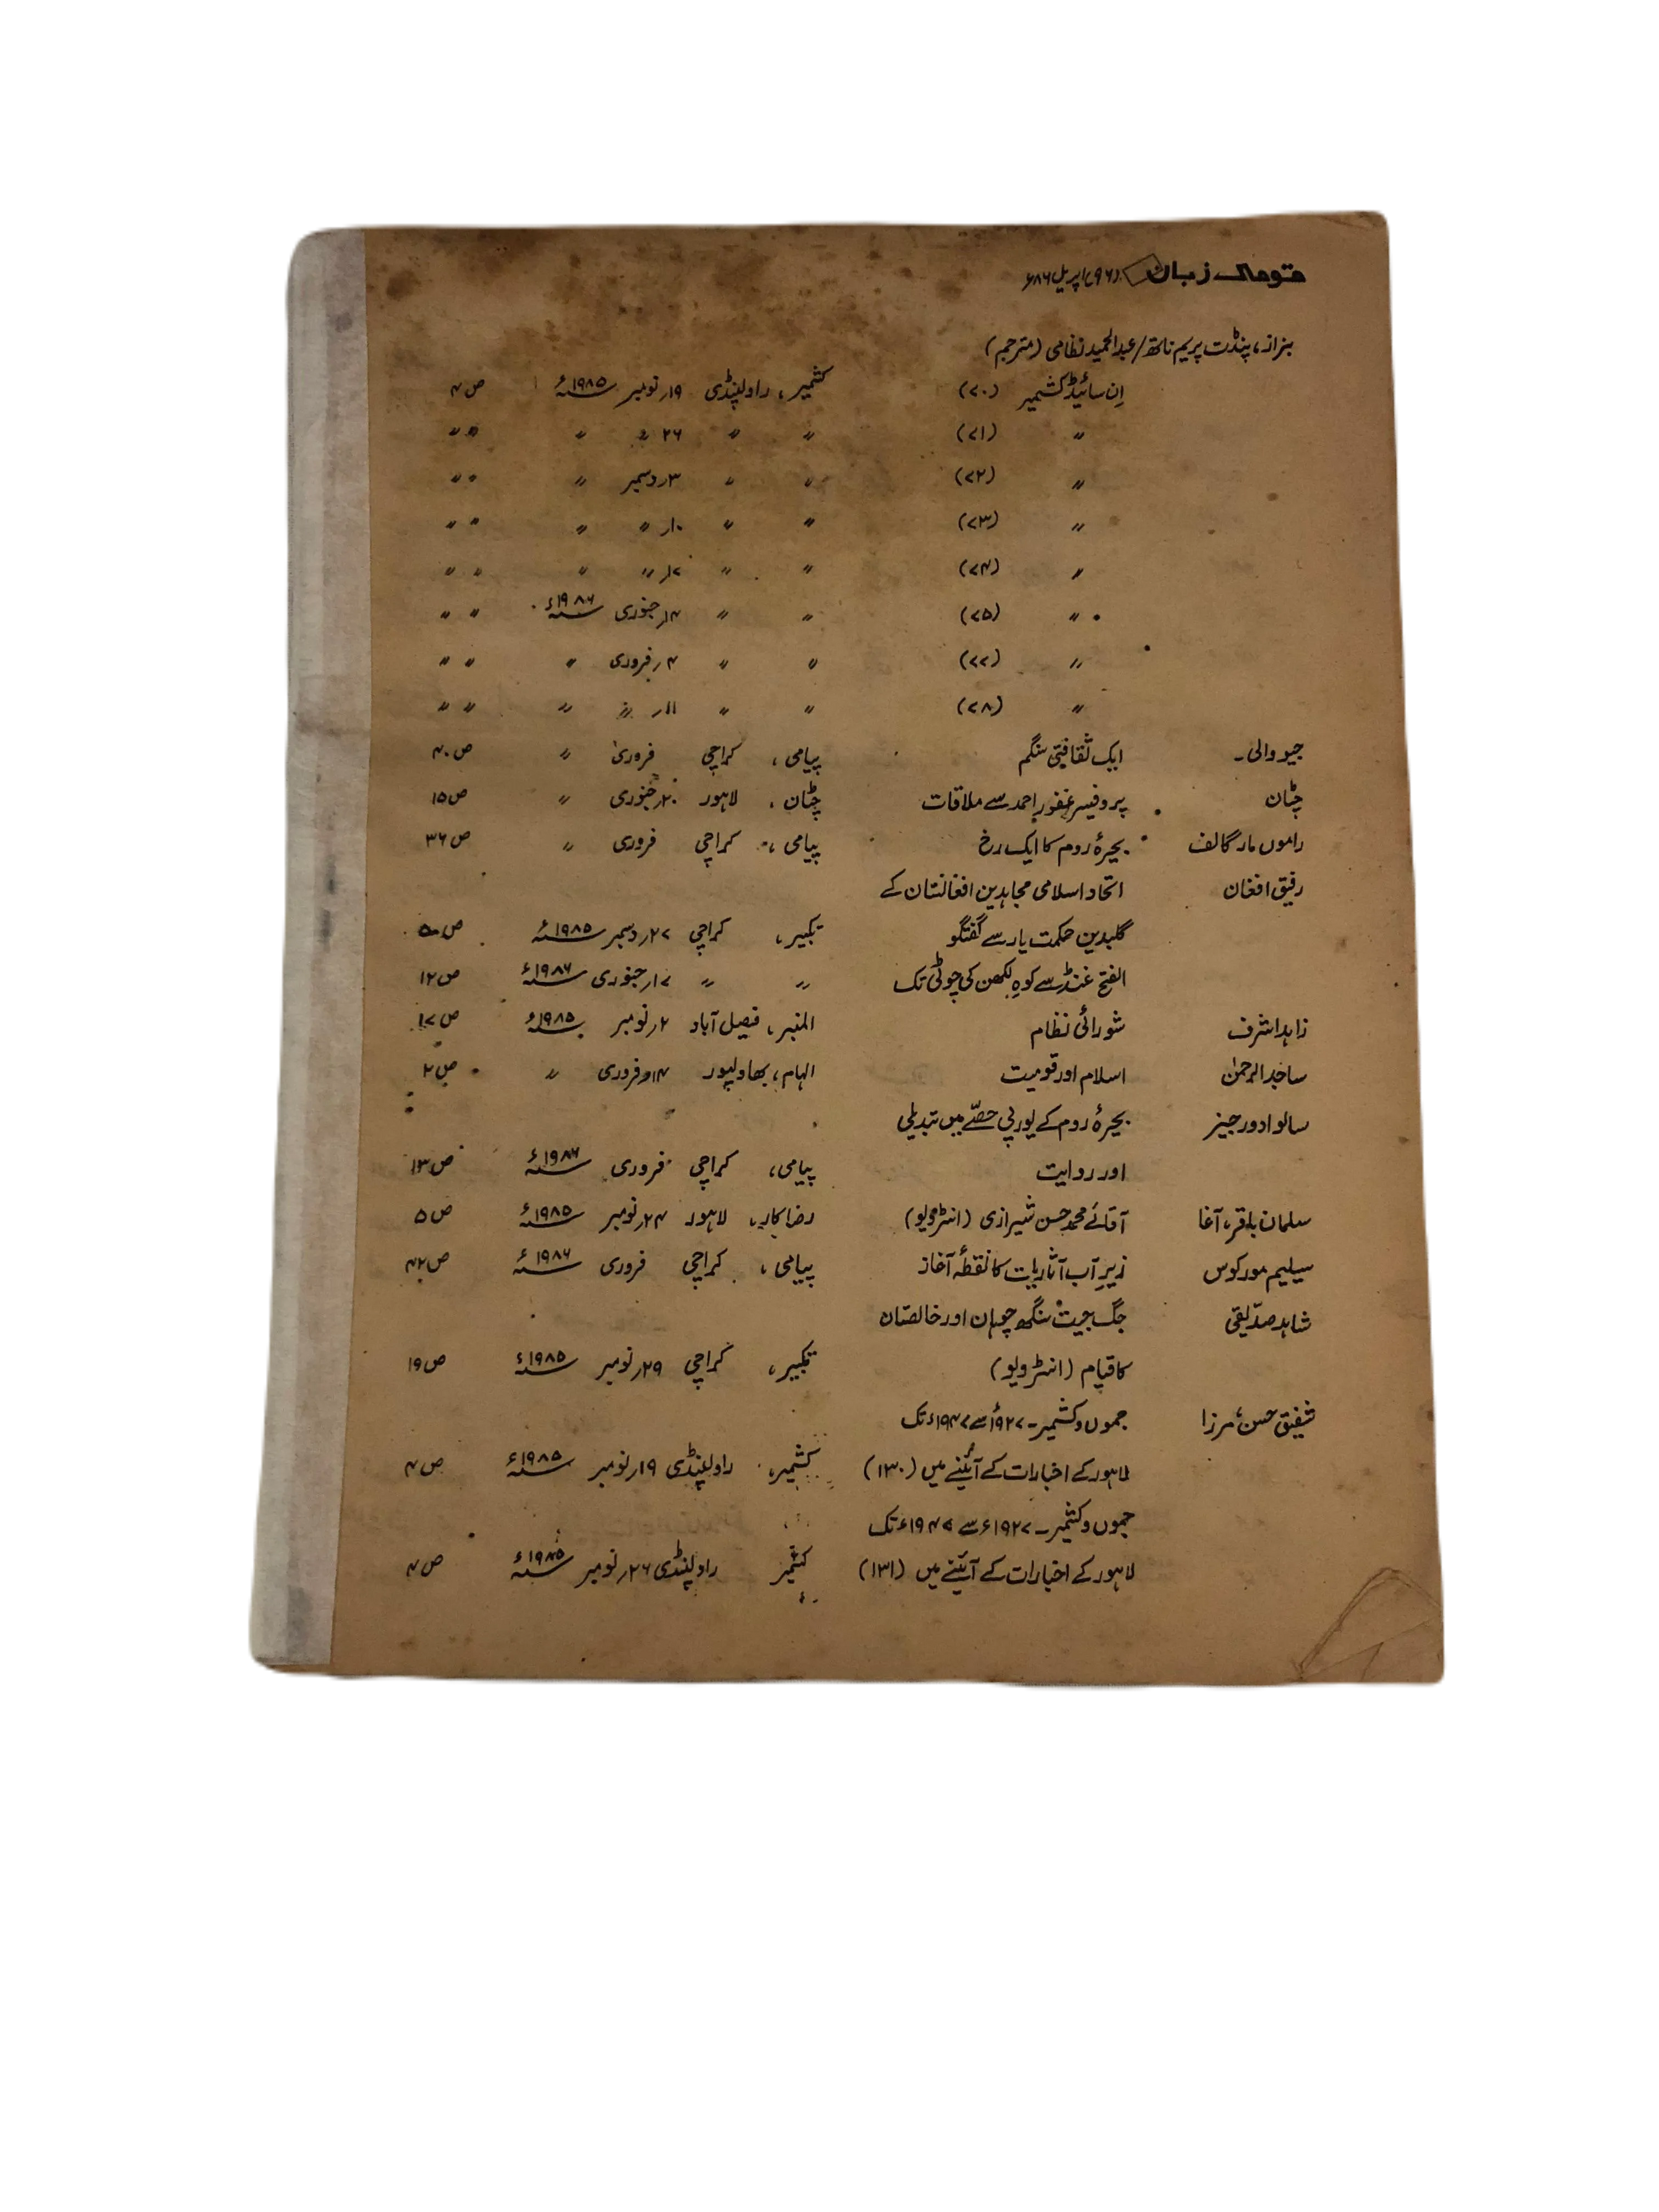 قومی زبان (۹۶) اپریل ۸۶ء
بزاز، پنڈت پریم ناتھ/عبدالحمید نظامی (مترجم)
اِن سائیڈ کشمیر (۷۰) کشمیر، راولپنڈی ۱۹؍نومبر ۱۹۸۵ء ص ۴
〃 (۷۱) 〃 〃 ۲۶ 〃 〃 〃 〃
〃 (۷۲) 〃 〃 ۳؍دسمبر 〃 〃 〃
〃 (۷۳) 〃 〃 ۱۰؍ 〃 〃 〃 〃
〃 (۷۴) 〃 〃 ۱۷؍ 〃 〃 〃 〃
〃 (۷۵) 〃 〃 ۱۴؍جنوری ۱۹۸۶ء 〃 〃
〃 (۷۷) 〃 〃 ۴؍فروری 〃 〃 〃
〃 (۷۸) 〃 〃 ۱۱؍ 〃 〃 〃 〃
جیو والی۔ ایک ثقافتی سنگم پیامی، کراچی فروری 〃 ص ۴۰
چٹان پروفیسر غفور احمد سے ملاقات چٹان، لاہور ۲۰؍جنوری 〃 ص ۱۵
راموں مارگالف بحیرۂ روم کا ایک رخ پیامی، کراچی فروری 〃 ص ۳۶
رفیق افغان اتحاد اسلامی مجاہدین افغانستان کے
گلبدین حکمت یار سے گفتگو تکبیر، کراچی ۲۷؍دسمبر ۱۹۸۵ء ص
الفتح غنڈ سے کوہِ لکھن کی چوٹی تک 〃 〃 ۱۷؍جنوری ۱۹۸۶ء ص ۱۲
زاہد اشرف شورائی نظام المنبر، فیصل آباد ۲؍نومبر ۱۹۸۵ء ص ۱۷
ساجد الرحمٰن اسلام اور قومیت الہام، بھاولپور ۱۴؍فروری 〃 ص ۲
سالوادور جینر بحیرۂ روم کے یورپی حصّے میں تبدیلی
اور روایت پیامی، کراچی فروری ۱۹۸۶ء ص ۱۳
سلمان باقر، آغا آقائے محمد حسن شیرازی (انٹرویو) رضاکار، لاہور ۲۴؍نومبر ۱۹۸۵ء ص ۵
سیلیم مورکوس زیرِ آب آثاریات کا نقطۂ آغاز پیامی، کراچی فروری ۱۹۸۶ء ص ۴۲
شاہد صدّیقی جگ جیت سنگھ چوہان اور خالصتان
کا قیام (انٹرویو) تکبیر، کراچی ۲۹؍نومبر ۱۹۸۵ء ص ۱۹
شفیق حسن، مرزا جموں و کشمیر۔ ۱۹۲۷ء سے ۱۹۴۷ء تک
لاہور کے اخبارات کے آئینے میں (۱۳۰) کشمیر، راولپنڈی ۱۹؍نومبر ۱۹۸۵ء ص ۴
جموں و کشمیر۔ ۱۹۲۷ء سے ۱۹۴۷ء تک
لاہور کے اخبارات کے آئینے میں (۱۳۱) کشمیر راولپنڈی ۲۶؍نومبر ۱۹۸۵ء ص ۴